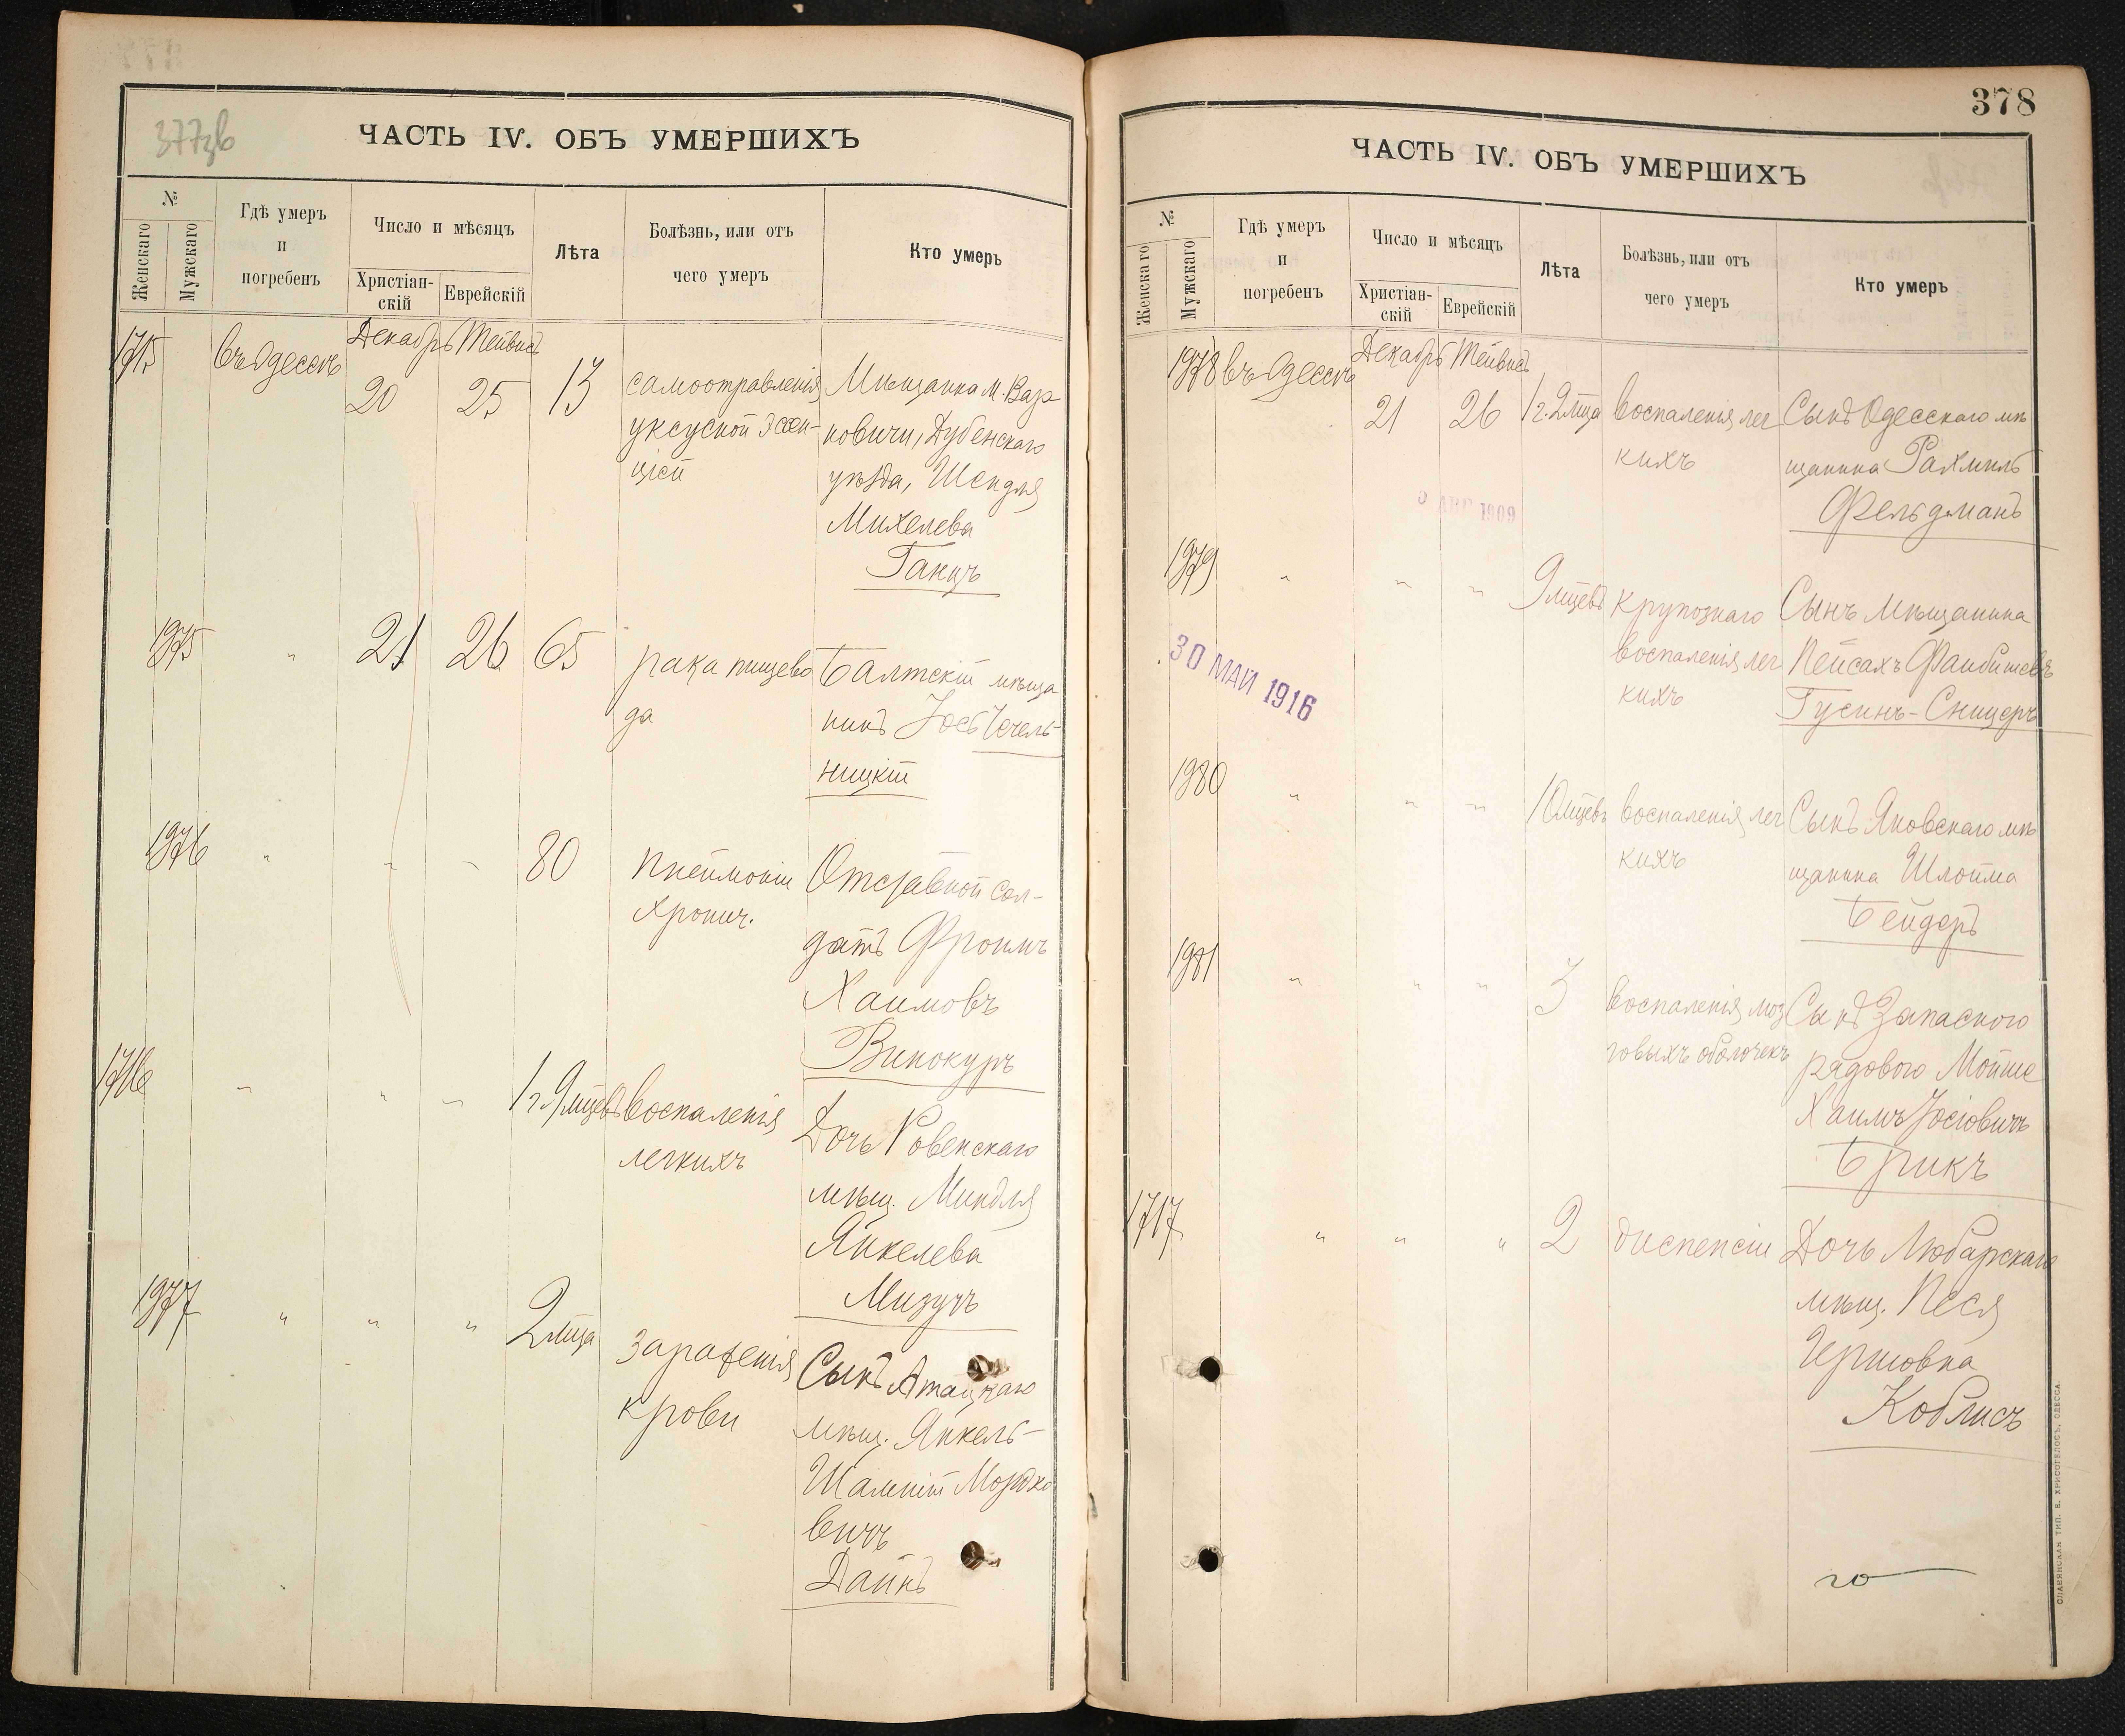 377зв
ЧАСТЬ IV. ОБЪ УМЕРШИХЪ
№
Женскаго
Мужскаго
Гдѣ умеръ
и
погребенъ
Число и мѣсяцъ
Христіан-
скій
Еврейскій
Лѣта
Болѣзнь, или отъ
чего умеръ
Кто умеръ
1715
въ Одессѣ
Декабрь Тейвисъ
20 25 13
самоотравленія
уксусной эссен-
ціей
Мѣщанка м. Вар
ковичи, Дубенскаго
уѣзда, Шейндля
Михелева
Ганцъ
1975 " 21 26 65
рака пищево
да
Балтскій мѣща
нинъ Іось Чечель-
ницкій
1976 " " " 80
пнеймоніи
хронич.
Отставной сол-
датъ Фроимъ
Хаимовъ
Винокуръ
1716 " " " 1 г. 9 мцевъ
воспаленія
легкихъ
Дочь Ровенскаго
мѣщ. Миндля
Янкелева
Мизучъ
1977 " " " 2 мца
зараженія
крови
Сынъ Атацкаго
мѣщ. Янкель-
Мордко
вичъ
Дайнъ
378
ЧАСТЬ IV. ОБЪ УМЕРШИХЪ
№
Женскаго
Мужскаго
Гдѣ умеръ
и
погребенъ
Число и мѣсяцъ
Христіан-
скій
Еврейскій
Лѣта
Болѣзнь, или отъ
чего умеръ
Кто умеръ
1978 въ Одессѣ
Декабрь Тейвисъ
21 26 1 г. 2 мца
воспаленія лег
кихъ
Сынъ Одесскаго мѣ
щанина Рахмиль
Фельдманъ
3 АВГ 1909
1979 " " " 9 мцевъ
крупознаго
воспаленія лег
кихъ
Сынъ мѣщанина
Пейсахъ Фаибишевъ
Гусинъ-Сницеръ
30 МАЙ 1916
1980 " " " 10 мцевъ
воспаленія лег
кихъ
Сынъ Яновскаго мѣ
щанина Шлойма
Бейдеръ
1981 " " " 3
воспаленія моз
говыхъ оболочекъ
Сынъ Запасного
рядового Мойше
Хаимъ Іосіовичъ
Брикъ
1717 " " " 2
диспепсіи
Дочь Любарскаго
мѣщ. Песя
Гершовна
Коблисъ
СЛАВЯНСКАЯ ТИП. Е. ХРИСОГЕЛОСЪ, ОДЕССА.